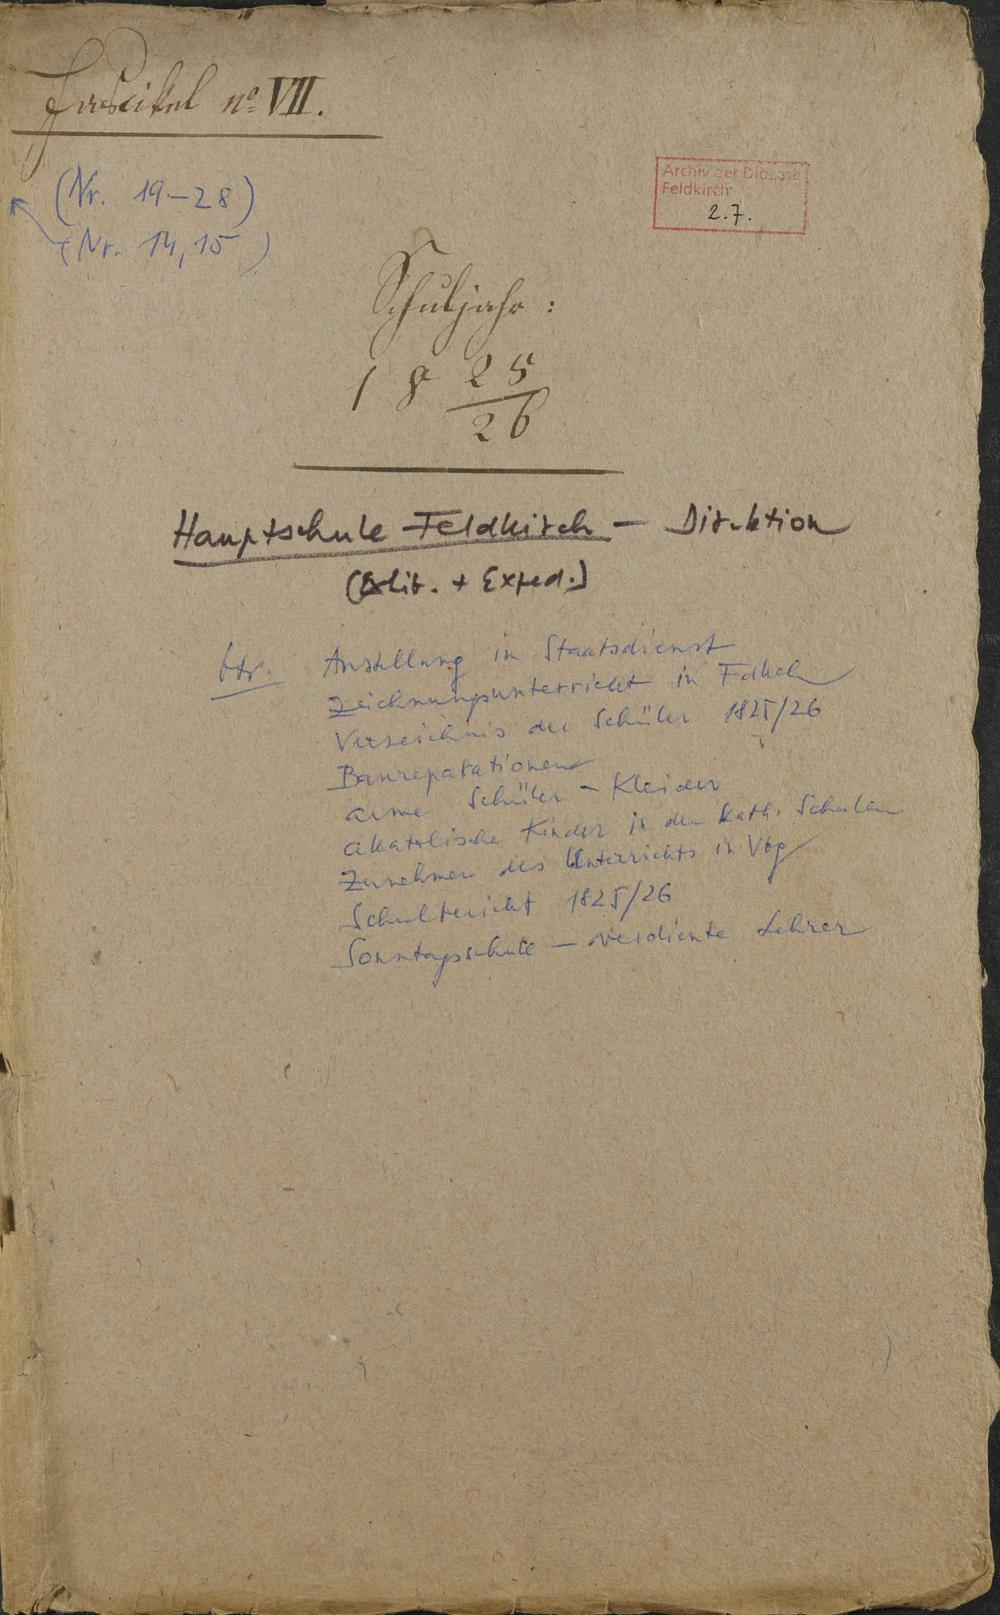 Fascikel no VII.
(Nr. 19–28)
(Nr. 14, 15)
Archiv der Diözese
Feldkirch
2.7.
Schuljahr:
18 25
26
Hauptschule Feldkirch – Direktion
(Exhib. + Exped.)
btr. Anstellung in Staatsdienst
Zeichnungsunterricht in Fdkch
Verzeichnis der Schüler 1825/26
Baureparationen
arme Schüler – Kleider
akatolische Kinder in den kath. Schulen
Zunehmen des Unterrichts in Vbg
Schulbericht 1825/26
Sonntagsschule – verdiente Lehrer